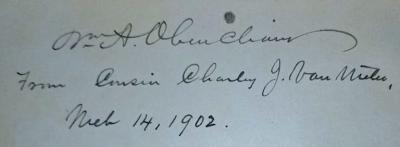 Wm A. Obenchain
From Cousin Charley J. Van Meter,
Mch 14, 1902.